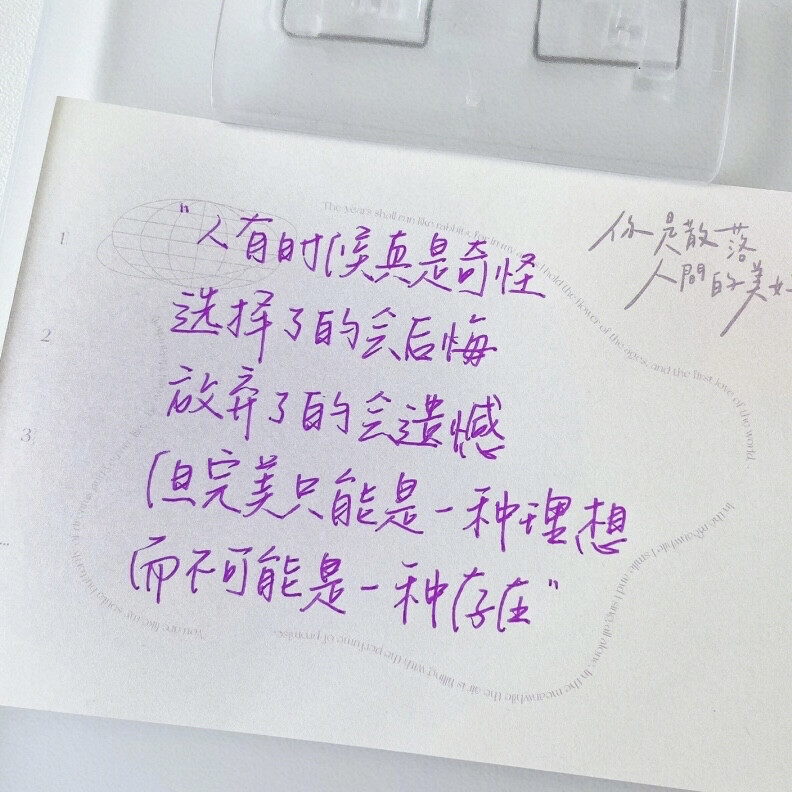 "人有的时候真是奇怪
选择了的会后悔
放弃了的会遗憾
但完美只能是一种理想
而不可能是一种存在"
你是散落
人間的美好
1
2
3
The years shall run like rabbits, for in my
hold the flower of the ages, and the first love of the world.
In the meanwhile I smile and I sing all alone. In the meanwhile the air is filling with the perfume of promise.
You are like me